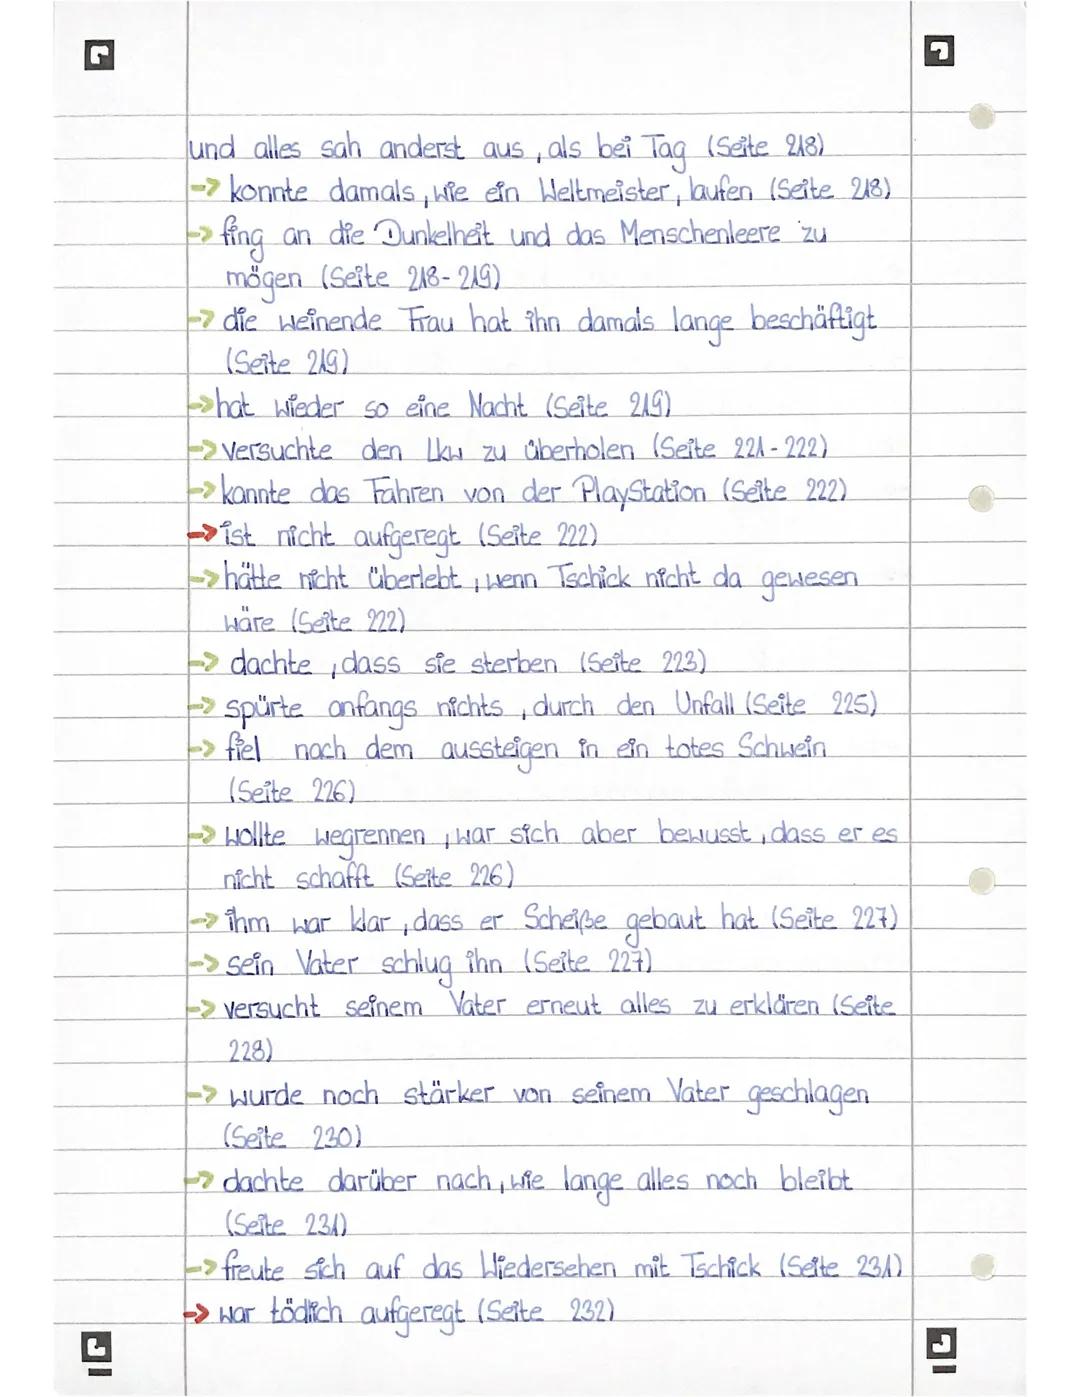 und alles sah anderst aus, als bei Tag (Seite 218)
-> konnte damals, wie ein Weltmeister, laufen (Seite 218)
-> fing an die Dunkelheit und das Menschenleere zu
mögen (Seite 218-219)
-> die weinende Frau hat ihn damals lange beschäftigt
(Seite 219)
-> hat wieder so eine Nacht (Seite 219)
-> versuchte den Lkw zu überholen (Seite 221-222)
-> kannte das Fahren von der PlayStation (Seite 222)
-> ist nicht aufgeregt (Seite 222)
-> hätte nicht überlebt, wenn Tschick nicht da gewesen
wäre (Seite 222)
-> dachte, dass sie sterben (Seite 223)
-> spürte anfangs nichts, durch den Unfall (Seite 225)
-> fiel nach dem aussteigen in ein totes Schwein
(Seite 226)
-> wollte wegrennen, war sich aber bewusst, dass er es
nicht schafft (Seite 226)
-> ihm war klar, dass er Scheiße gebaut hat (Seite 227)
-> sein Vater schlug ihn (Seite 227)
-> versucht seinem Vater erneut alles zu erklären (Seite
228)
-> wurde noch stärker von seinem Vater geschlagen
(Seite 230)
-> dachte darüber nach, wie lange alles noch bleibt
(Seite 231)
-> freute sich auf das Wiedersehen mit Tschick (Seite 231)
-> war tödlich aufgeregt (Seite 232)